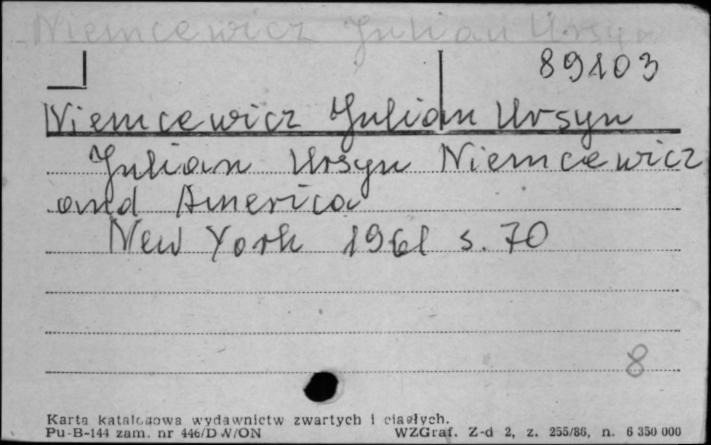 Niemcewicz Julian Ursyn
89103
Niemcewicz Julian Ursyn
Julian Ursyn Niemcewicz
and America
New York 1961 s. 70
8
Karta katalogowa wydawnictw zwartych i ciągłych.
Pu-B-144 zam. nr 446/DW/ON WZGraf. Z-d 2, z. 255/86, n. 6 350 000